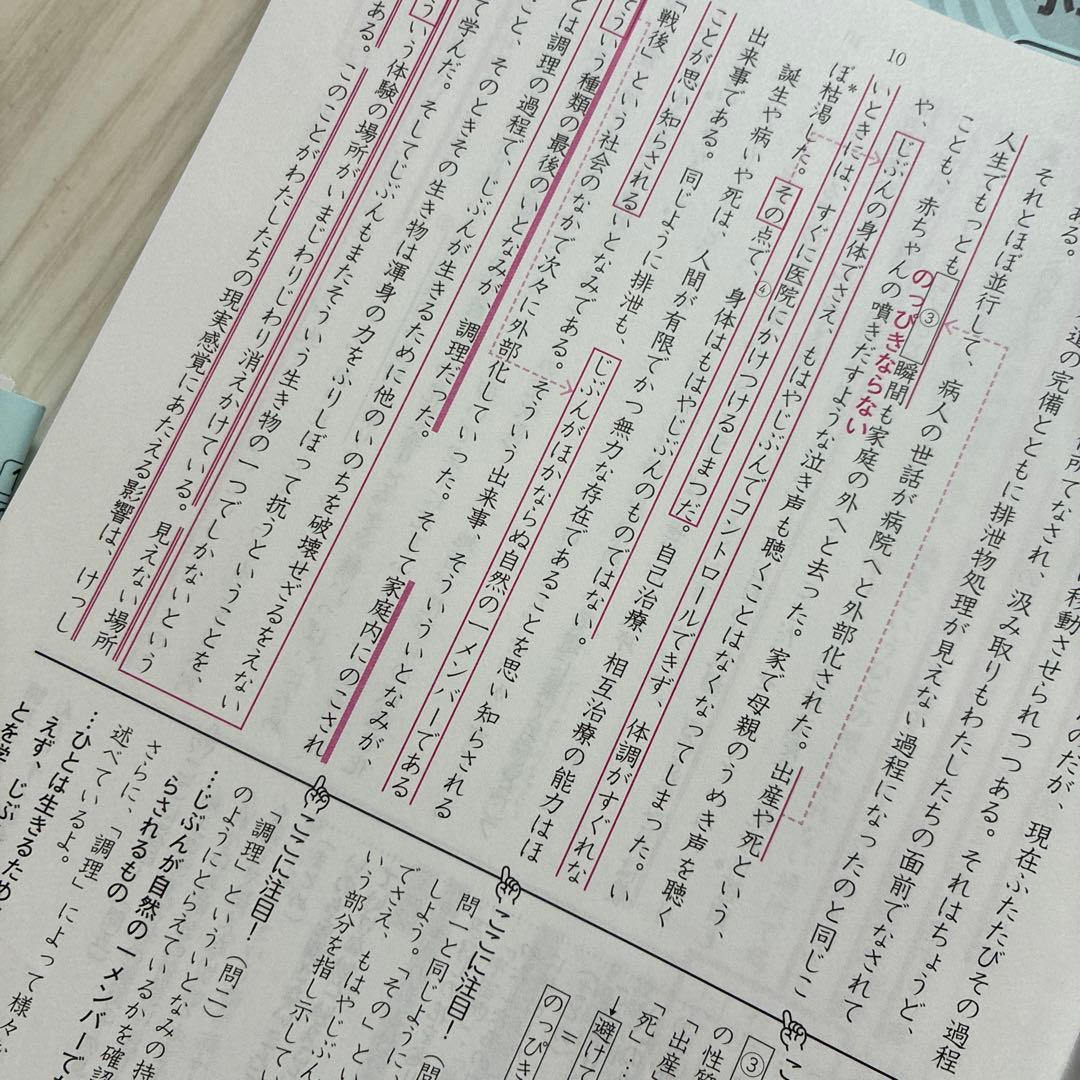 10
ある。
道の完備とともに排泄物処理が見えない過程になったのと同じこ
移動させられつつある。それはちょうど、
それとほぼ並行して、病人の世話が病院へと外部化された。出産や死という、
人生でもっとも③のっぴきならない瞬間も家庭の外へと去った。家で母親のうめき声を聴く
ことも、赤ちゃんの噴きだすような泣き声も聴くことはなくなってしまった。い
や、じぶんの身体でさえ、もはやじぶんでコントロールできず、体調がすぐれな
いときには、すぐに医院にかけつけるしまつだ。自己治療、相互治療の能力はほ
ぼ*枯渇した。その点で、④身体はもはやじぶんのものではない。
誕生や病いや死は、人間が有限でかつ無力な存在であることを思い知らされる
出来事である。同じように排泄も、じぶんがほかならぬ自然の一メンバーである
ことが思い知らされるいとなみである。そういう出来事、そういういとなみが、
「戦後」という社会のなかで次々に外部化していった。そして家庭内にのこされ
そういう種類の最後のいとなみが、調理だった。
とは調理の過程で、じぶんが生きるために他のいのちを破壊せざるをえない
こと、そのときその生き物は渾身の力をふりしぼって抗うということを、
て学んだ。そしてじぶんもまたそういう生き物の一つでしかないという
いう体験の場所がいまじわりじわり消えかけている。見えない場所
ある。このことがわたしたちの現実感覚にあたえる影響は、けっし
③
の性質
「出産
「死」…
↓
避けて
=
のっぴき
ここに注目!(問
問一と同じように、
しよう。「その」とい
でさえ、もはやじぶん
いう部分を指し示してい
ここに注目!(問二)
「調理」といういとなみの持
のようにとらえているかを確認
…じぶんが自然の一メンバーで
らされるもの
さらに、「調理」によって様々
述べているよ。
…ひとは生きるため
えず、じぶ
とを学